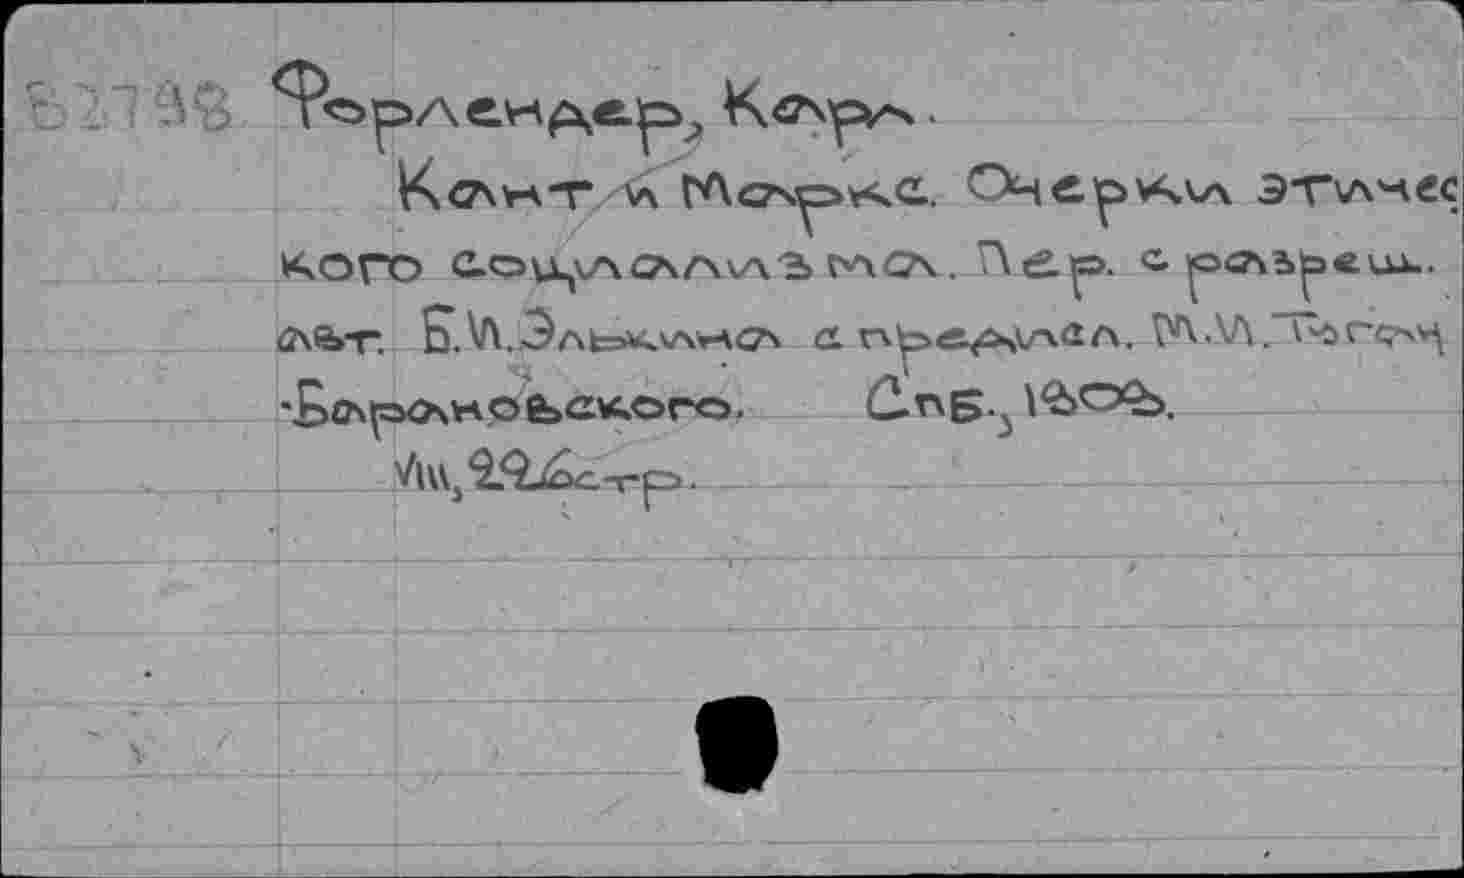 Форлендер, Карл.
Кант и Маркс. Очерки этичес
кого социализма. Пер. с разреш.
авт. Б.И.Элькина с предисл. М.И.Туган
-Барановского. Спб., 1909.
VIII, 226стр.